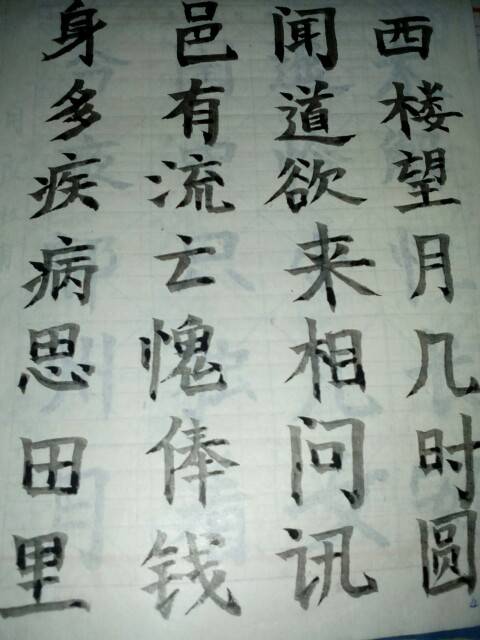 身多疾病思田里
邑有流亡愧俸钱
闻道欲来相问讯
西楼望月几时圆